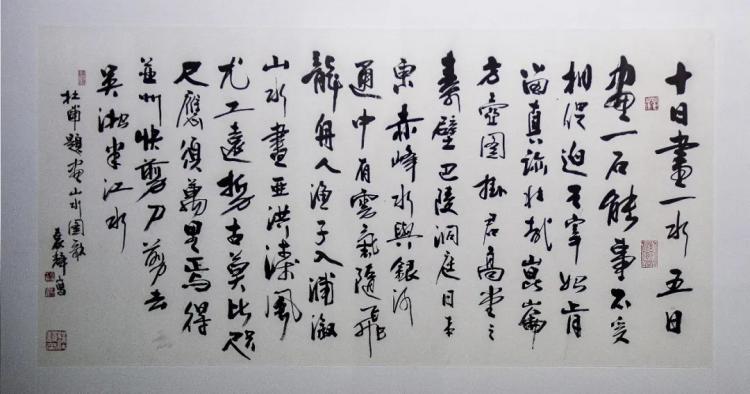 十日畫一水五日
画一石能事不受
相促迫王宰始肯
留真跡壯哉崑崙
方壺圖掛君高堂之
素壁巴陵洞庭日本
東赤峰水與銀河
通中有雲氣隨飛
龍舟人漁子入浦溆
山水盡亞洪濤風
尤工遠勢古莫比咫
尺應須萬里焉得
並州快剪刀剪去
吳淞半江水
杜甫題画山水圖歌
書